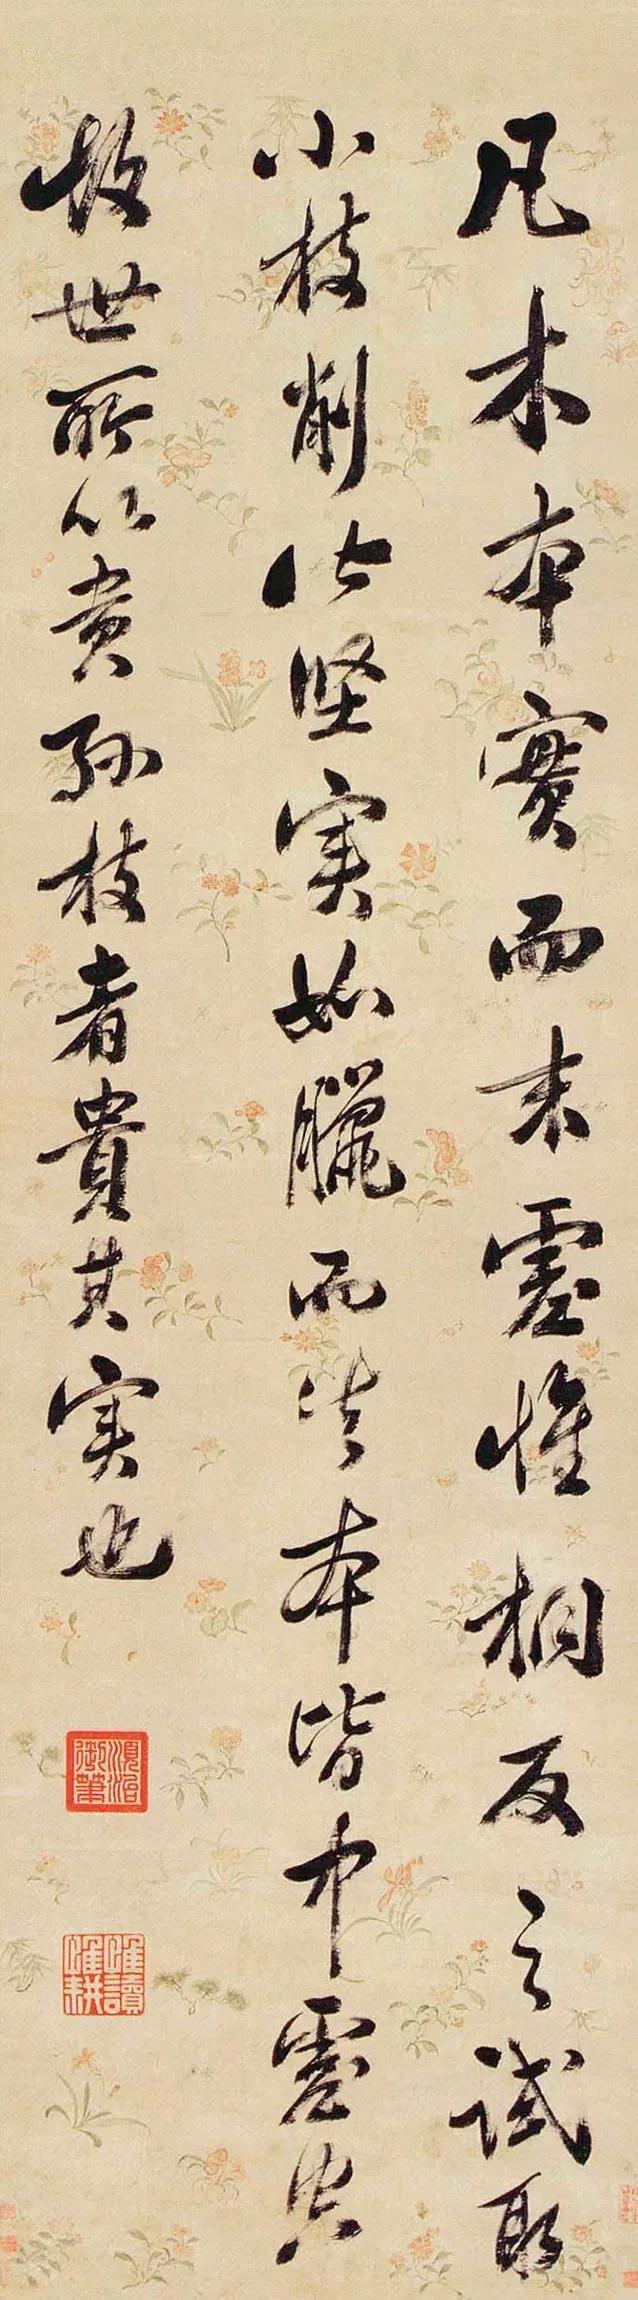 凡木本實而末虛惟桐反之試取
小枝削堅実如臘而其本皆中虛空
故世所以貴孫枝者貴其実也
順治
御筆
讀
耕